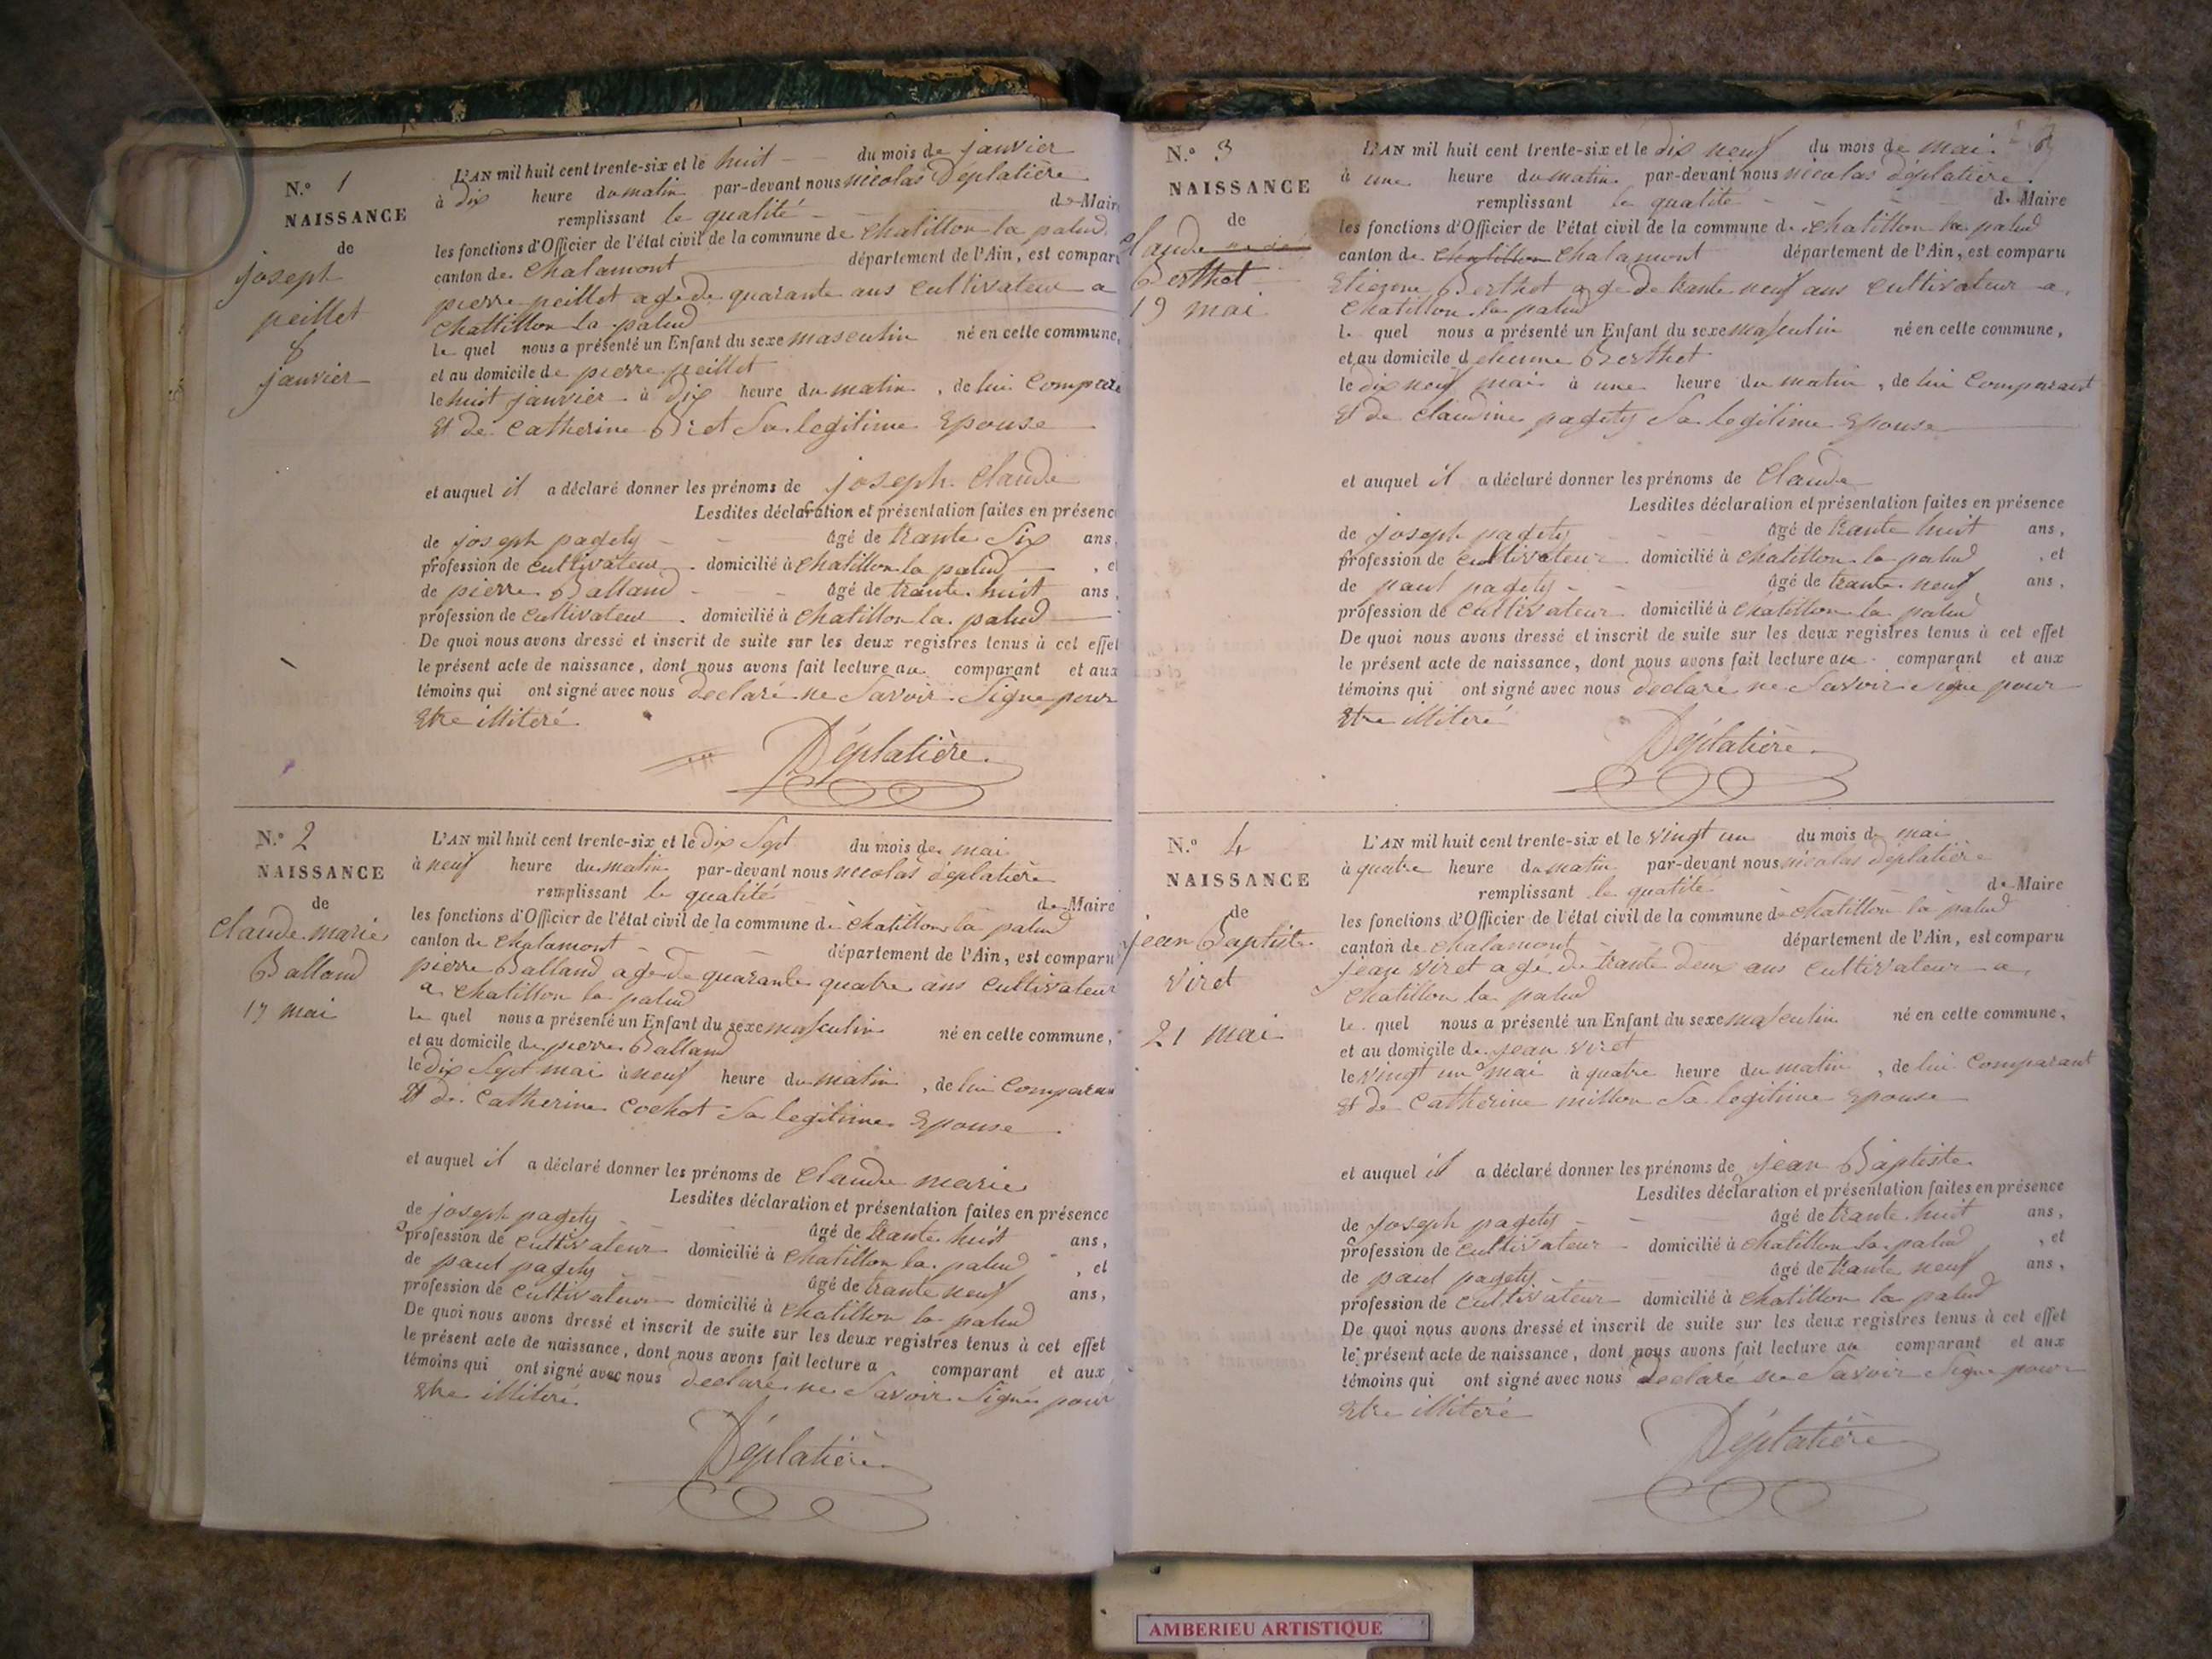 N.º 1
NAISSANCE
de
joseph
peillet
8
janvier
L'AN mil huit cent trente-six et le huit du mois de janvier
à dix heure du matin par-devant nous nicolas Déplatière
remplissant la qualité de Maire
les fonctions d'Officier de l'état civil de la commune de chatillon la palud
canton de chalamont département de l'Ain, est comparu
pierre peillet age de quarante ans cultivateur a
chattillon la palud
le quel nous a présenté un Enfant du sexe masculin né en cette commune,
et au domicile de pierre peillet
le huit janvier à dix heure du matin, de lui Compara
Et de catherine Bret Sa legitime Epouse
et auquel il a déclaré donner les prénoms de joseph Claude
Lesdites déclaration et présentation faites en présence
de joseph pagety âgé de trante Six ans,
profession de cultivateur domicilié à chatillon la palud, et
de pierre Balland âgé de trante huit ans,
profession de cultivateur domicilié à chatillon la palud
De quoi nous avons dressé et inscrit de suite sur les deux registres tenus à cet effet
le présent acte de naissance, dont nous avons fait lecture au comparant et aux
témoins qui ont signé avec nous declaré ne Savoir Signe pour
Etre illiteré
Déplatière
N.º 2
NAISSANCE
de
Claude marie
Balland
17 mai
L'AN mil huit cent trente-six et le dix Sept du mois de mai
à neuf heure du matin par-devant nous nicolas déplatière
remplissant la qualité de Maire
les fonctions d'Officier de l'état civil de la commune de chatillon la palud
canton de chalamont département de l'Ain, est comparu
pierre Balland age de quarante quatre ans cultivateur
a chatillon la palud
le quel nous a présenté un Enfant du sexe masculin né en cette commune,
et au domicile de pierre Balland
le dix Sept mai à neuf heure du matin, de lui Comparan
Et de Catherine Cochet Sa legitime Epouse
et auquel il a déclaré donner les prénoms de Claude marie
Lesdites déclaration et présentation faites en présence
de joseph pagety âgé de trante huit ans,
profession de cultivateur domicilié à chatillon la palud, et
de paul pagety âgé de trante neuf ans,
profession de cultivateur domicilié à chatillon la palud
De quoi nous avons dressé et inscrit de suite sur les deux registres tenus à cet effet
le présent acte de naissance, dont nous avons fait lecture a comparant et aux
témoins qui ont signé avec nous declaré ne Savoir Signé pour
Etre illiteré
Déplatière
N.º 3
NAISSANCE
de
Claude
Berthet
19 mai
L'AN mil huit cent trente-six et le dix neuf du mois de mai
à une heure du matin par-devant nous nicolas déplatière
remplissant la qualité de Maire
les fonctions d'Officier de l'état civil de la commune de chatillon la palud
canton de chatillon Chalamont département de l'Ain, est comparu
Etienne Berthet age de trante neuf ans cultivateur a
chatillon la palud
le quel nous a présenté un Enfant du sexe masculin né en cette commune,
et au domicile d etienne Berthet
le dix neuf mai à une heure du matin, de lui Comparant
Et de claudine pagety Sa legitime Epouse
et auquel il a déclaré donner les prénoms de Claude
Lesdites déclaration et présentation faites en présence
de joseph pagety âgé de trante huit ans,
profession de cultivateur domicilié à chatillon la palud, et
de paul pagety âgé de trante neuf ans,
profession de cultivateur domicilié à chatillon la palud
De quoi nous avons dressé et inscrit de suite sur les deux registres tenus à cet effet
le présent acte de naissance, dont nous avons fait lecture au comparant et aux
témoins qui ont signé avec nous declaré ne Savoir signe pour
Etre illiteré
Déplatière
N.º 4
NAISSANCE
de
jean Baptiste
viret
21 mai
L'AN mil huit cent trente-six et le vingt un du mois de mai
à quatre heure du matin par-devant nous nicolas déplatière
remplissant la qualité de Maire
les fonctions d'Officier de l'état civil de la commune de chatillon la palud
canton de chalamont département de l'Ain, est comparu
jean viret agé de trante deux ans cultivateur a
chatillon la palud
le quel nous a présenté un Enfant du sexe masculin né en cette commune,
et au domicile de jean viret
le vingt un mai à quatre heure du matin, de lui Comparant
Et de Catherine millon Sa legitime Epouse
et auquel il a déclaré donner les prénoms de jean Baptiste
Lesdites déclaration et présentation faites en présence
de joseph pagety âgé de trante huit ans,
profession de cultivateur domicilié à chatillon la palud, et
de paul pagety âgé de trante neuf ans,
profession de cultivateur domicilié à chatillon la palud
De quoi nous avons dressé et inscrit de suite sur les deux registres tenus à cet effet
le présent acte de naissance, dont nous avons fait lecture au comparant et aux
témoins qui ont signé avec nous declaré ne Savoir Signe pour
Etre illiteré
Déplatière
AMBERIEU ARTISTIQUE